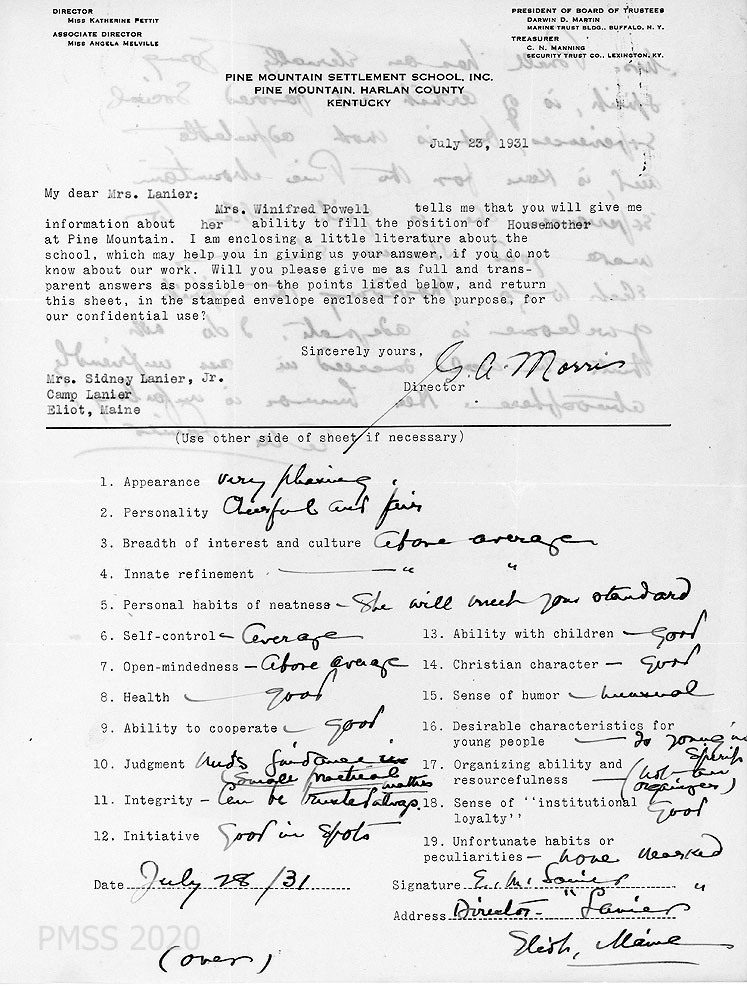 DIRECTOR
MISS KATHERINE PETTIT
ASSOCIATE DIRECTOR
MISS ANGELA MELVILLE
PRESIDENT OF BOARD OF TRUSTEES
DARWIN D. MARTIN
MARINE TRUST BLDG., BUFFALO, N. Y.
TREASURER
C. N. MANNING
SECURITY TRUST CO., LEXINGTON, KY.
PINE MOUNTAIN SETTLEMENT SCHOOL, INC.
PINE MOUNTAIN, HARLAN COUNTY
KENTUCKY
July 23, 1931
My dear Mrs. Lanier:
Mrs. Winifred Powell tells me that you will give me
information about her ability to fill the position of Housemother
at Pine Mountain. I am enclosing a little literature about the
school, which may help you in giving us your answer, if you do not
know about our work. Will you please give me as full and trans-
parent answers as possible on the points listed below, and return
this sheet, in the stamped envelope enclosed for the purpose, for
our confidential use?
Sincerely yours,
G. A. Morris
Director
Mrs. Sidney Lanier, Jr.
Camp Lanier
Eliot, Maine
(Use other side of sheet if necessary)
1. Appearance very pleasing.
2. Personality Cheerful and fair
3. Breadth of interest and culture Above average
4. Innate refinement — " "
5. Personal habits of neatness - She will meet your standard
6. Self-control - Average
7. Open-mindedness - Above average
8. Health - good
9. Ability to cooperate - good
10. Judgment needs guidance in
(Single practical matters
11. Integrity - Can be trusted always.
12. Initiative Good in spots
13. Ability with children - good
14. Christian character - good
15. Sense of humor - unusual
16. Desirable characteristics for
young people - Is young in
spirit
17. Organizing ability and
resourcefulness - (not an
organizer)
18. Sense of "institutional
loyalty" Good
19. Unfortunate habits or
peculiarities - none marked
Date July 28/31
Signature E. M. Lanier
Address Director - " Lanier "
Eliot, Maine
(over)
PMSS 2020